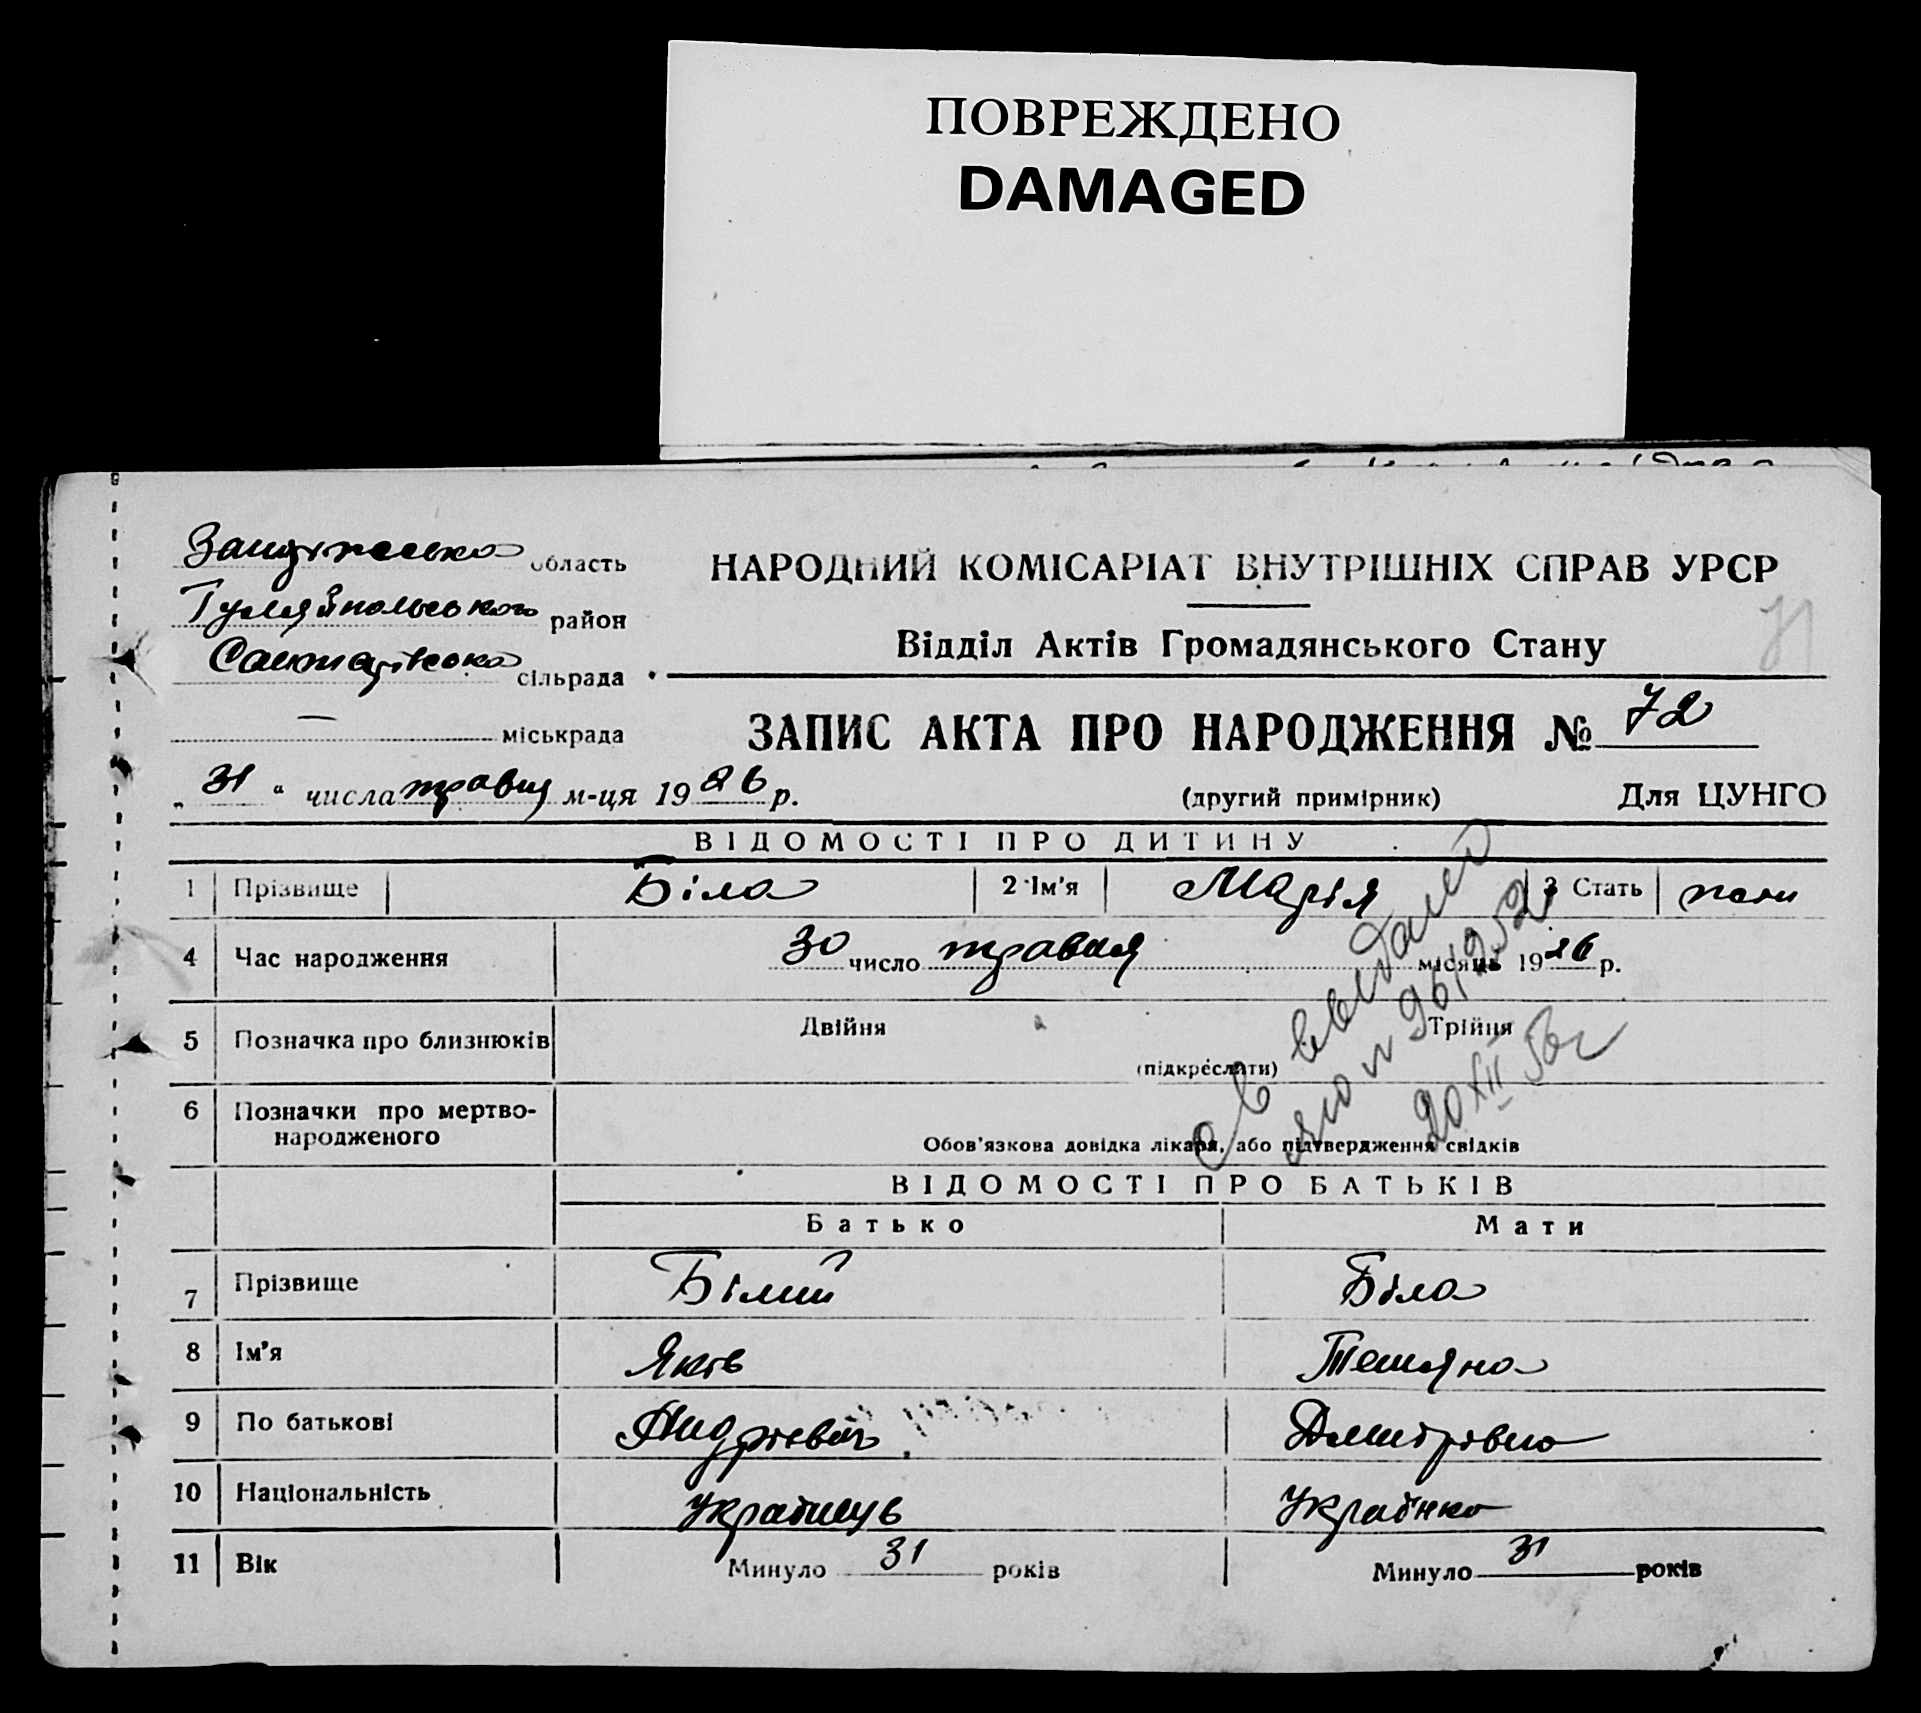 ПОВРЕЖДЕНО
DAMAGED
область
Гуляйпольського район
сільрада
міськрада
НАРОДНИЙ КОМІСАРІАТ ВНУТРІШНІХ СПРАВ УРСР
71
Відділ Актів Громадянського Стану
ЗАПИС АКТА ПРО НАРОДЖЕННЯ № 72
„ 31 " числа травня м-ця 1926 р.
(другий примірник)
Для ЦУНГО
ВІДОМОСТІ ПРО ДИТИНУ
1 Прізвище Біла 2 Ім'я Марія 3 Стать
4 Час народження 30 число травня місяць 1926 р.
5 Позначка про близнюків Двійня Трійня
(підкреслити)
6 Позначки про мертво-
народженого
Обов'язкова довідка лікаря, або підтвердження свідків
20 XII
ВІДОМОСТІ ПРО БАТЬКІВ
Батько Мати
7 Прізвище Білий Біла
8 Ім'я Яків Тетяна
9 По батькові Андрієвіч Дмитрівна
10 Національність Українець Українка
11 Вік Минуло 31 років Минуло 31 років